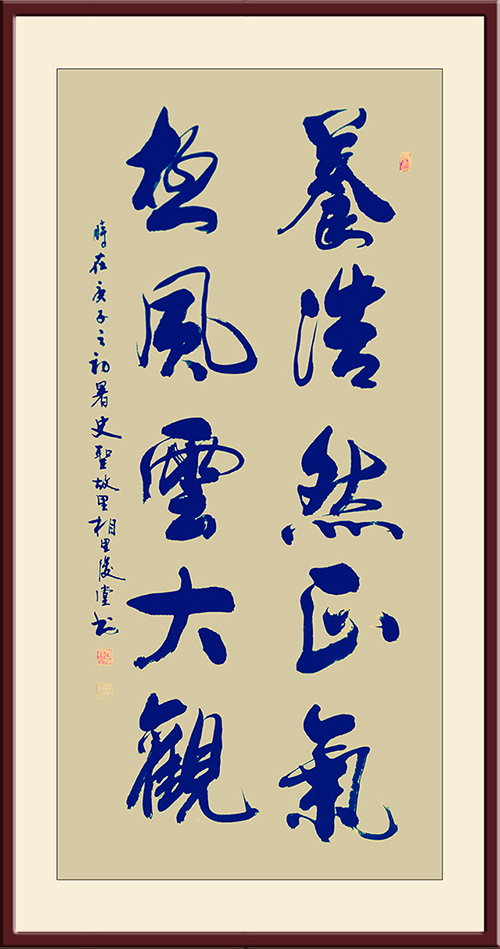 養浩然正氣
極風雲大觀
時在庚子之初暑史聖故里相里俊堂书